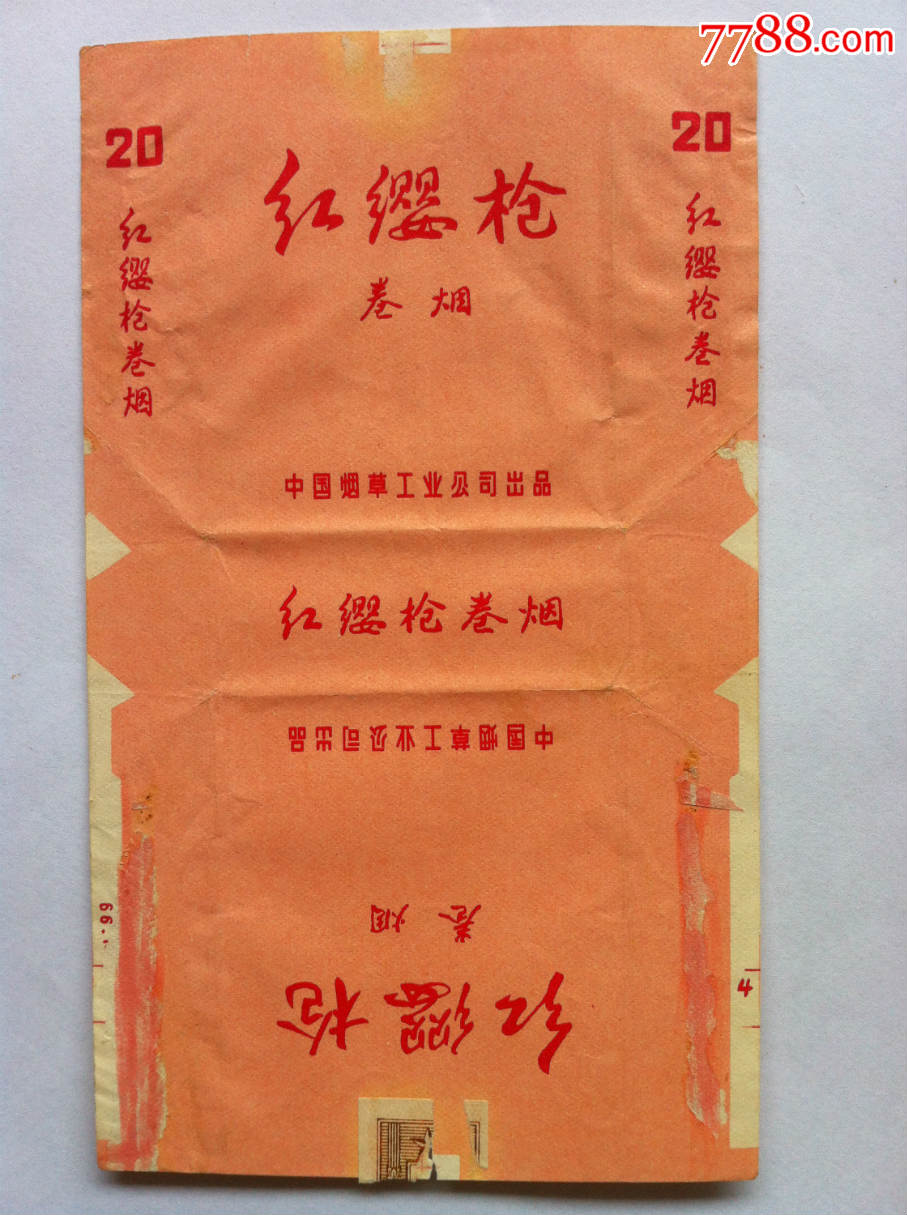 7788.com
20
20
红缨枪
卷烟
红缨枪卷烟
红缨枪卷烟
中国烟草工业公司出品
红缨枪卷烟
中国烟草工业公司出品
卷烟
红缨枪
4